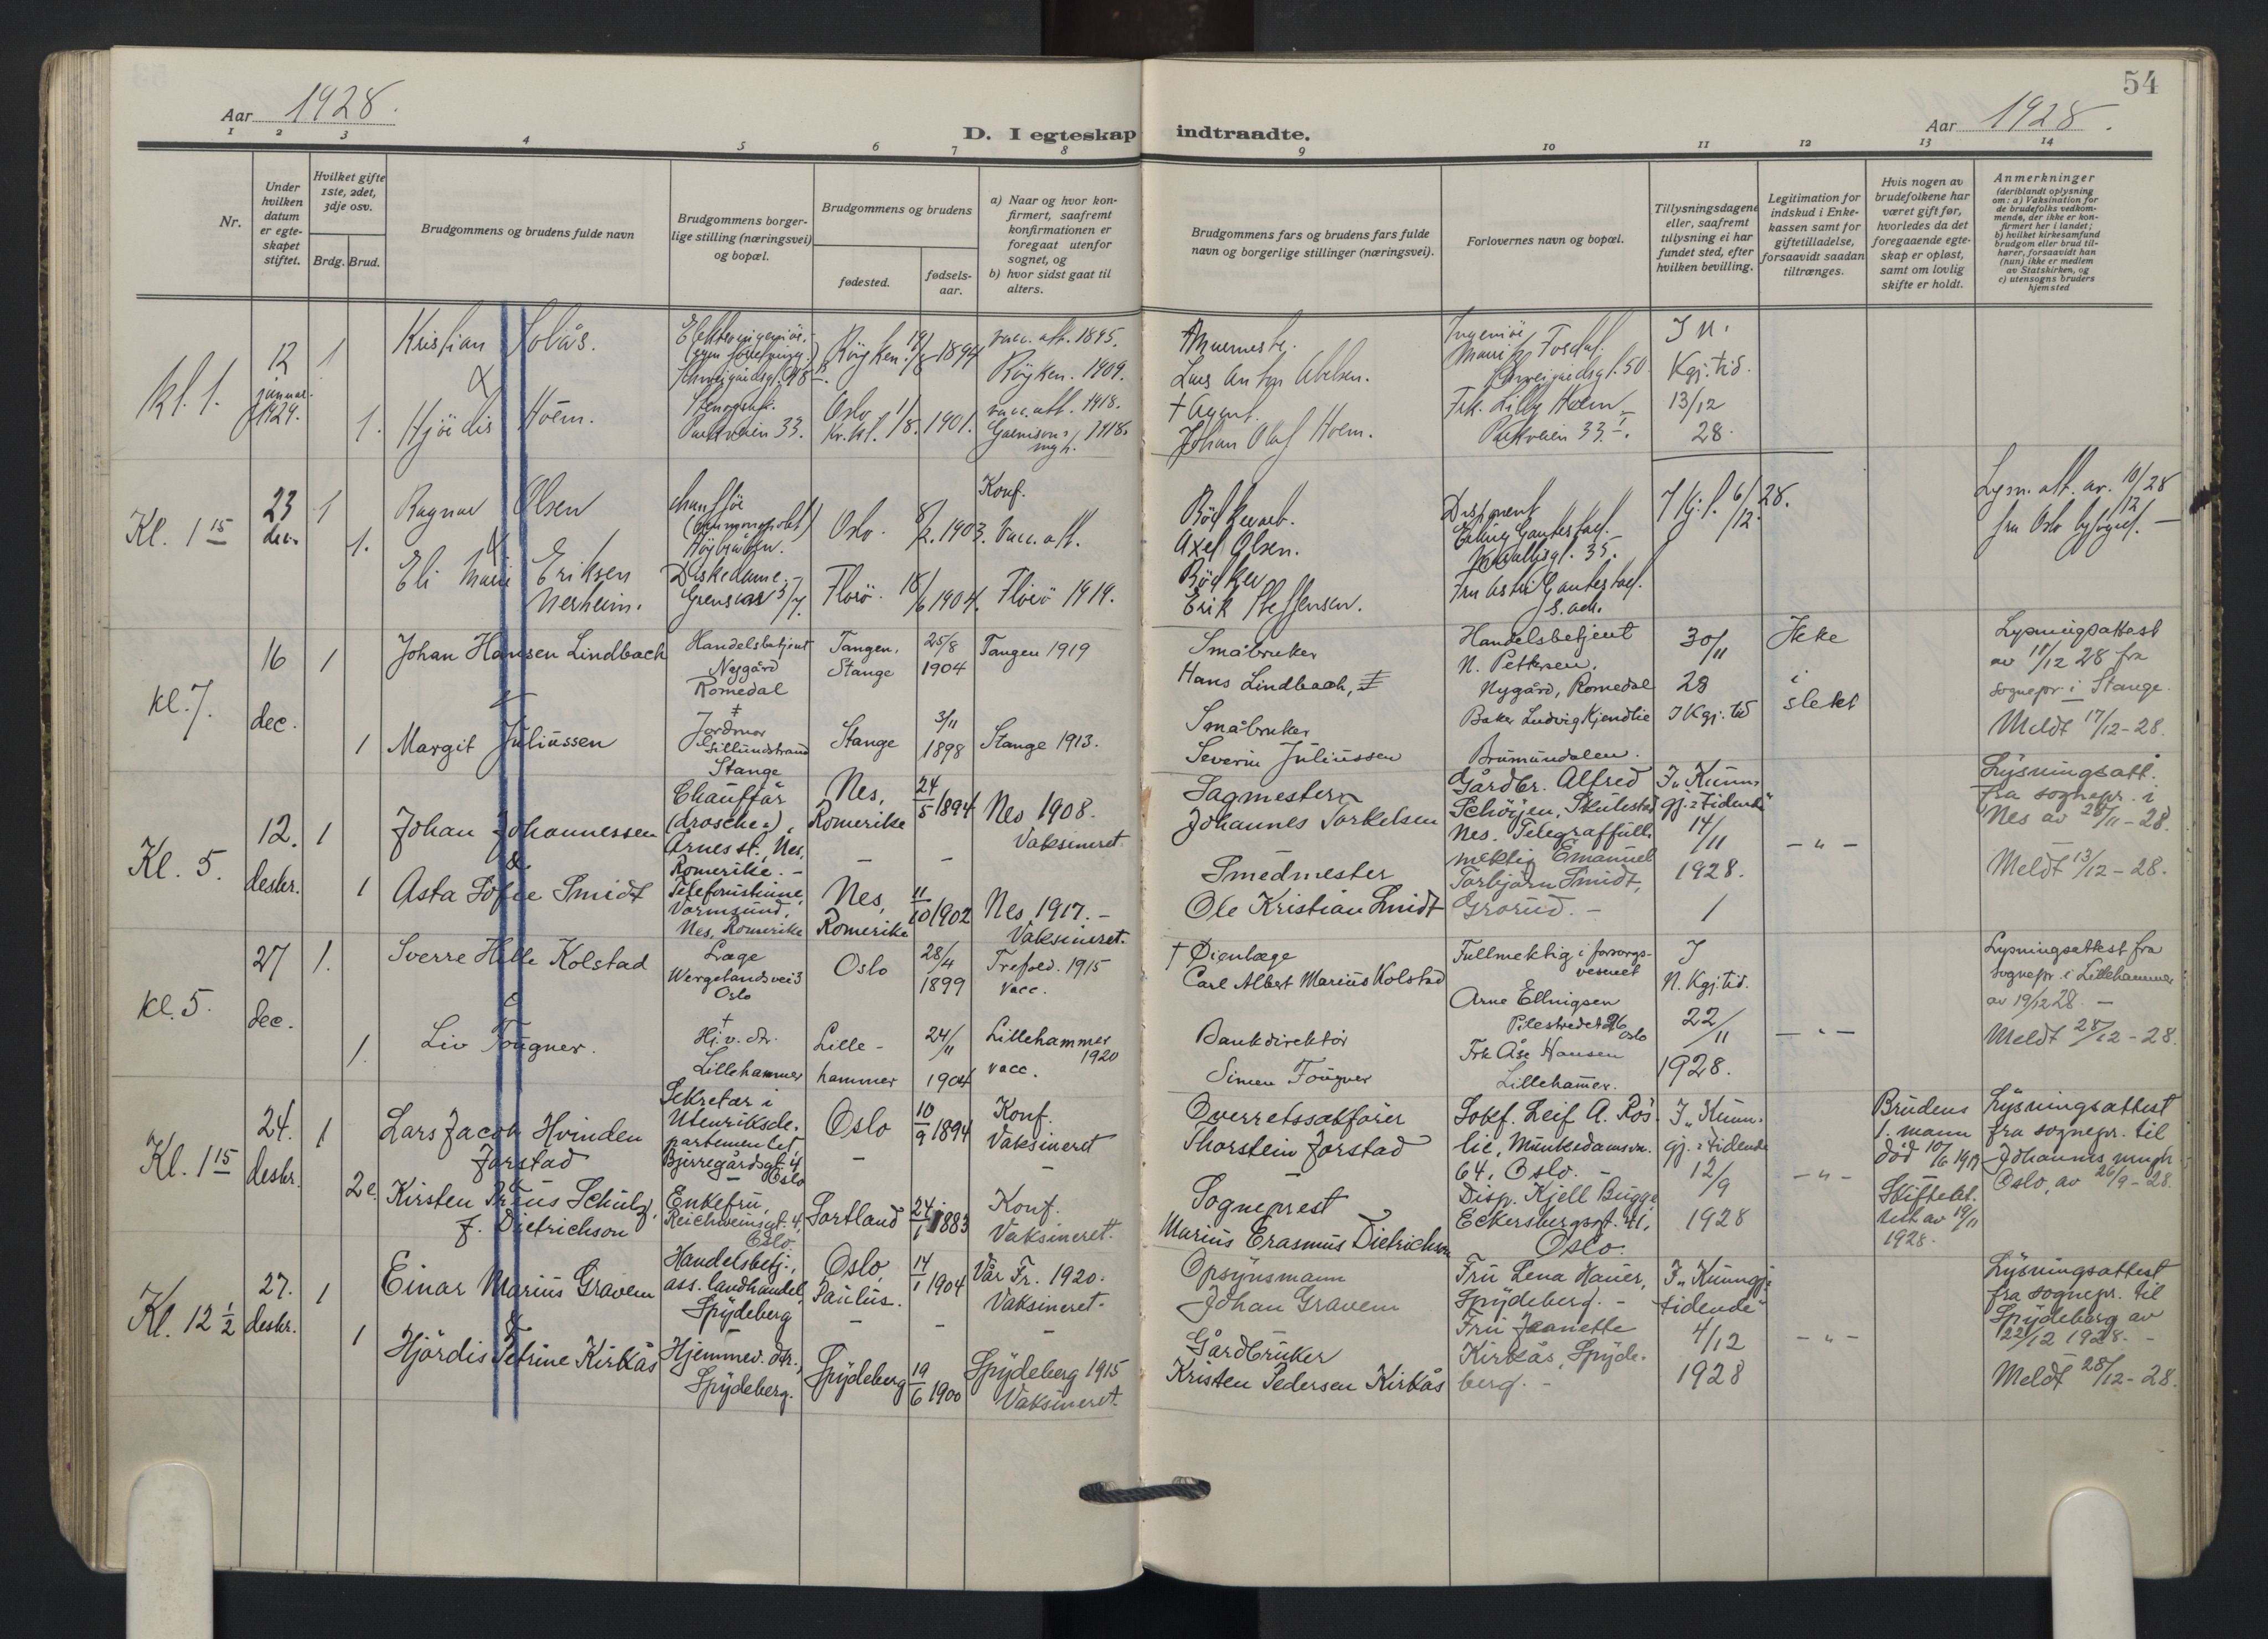 54
Aar 1928.
D. I egteskap indtraadte.
Aar 1928.
1 2 3 4 5 6 7 8 9 10 11 12 13 14
Nr.
Under
hvilken
datum
er egte-
skapet
stiftet.
Hvilket gifte
1ste, 2det,
3dje osv.
Brdg. Brud.
Brudgommens og brudens fulde navn
Brudgommens borger-
lige stilling (næringsvei)
og bopæl.
Brudgommens og brudens
fødested.
fødsels-
aar.
a) Naar og hvor kon-
firmert, saafremt
konfirmationen er
foregaat utenfor
sognet, og
b) hvor sidst gaat til
alters.
Brudgommens fars og brudens fars fulde
navn og borgerlige stillinger (næringsvei).
Forlovernes navn og bopæl.
Tillysningsdagene
eller, saafremt
tillysning ei har
fundet sted, efter
hvilken bevilling.
Legitimation for
indskud i Enke-
kassen samt for
giftetilladelse,
forsaavidt saadan
tiltrænges.
Hvis nogen av
brudefolkene har
været gift før,
hvorledes da det
foregaaende egte-
skap er opløst,
samt om lovlig
skifte er holdt.
Anmerkninger
(deriblandt oplysning
om: a) Vaksination for
de brudefolks vedkom-
mende, der ikke er kon-
firmert her i landet;
b) hvilket kirkesamfund
brudgom eller brud til-
hører, forsaavidt han
(hun) ikke er medlem
av Statskirken, og
c) utensogns bruders
hjemsted
Kl. 1.
12
januar
1929.
1
Kristian Solås.
Røyken. 19/8 1894
vacc. att. 1895.
Røyken. 1909.
Lars Anton Abelsen.
Ingeniør
Schweigaardsgt. 50
I N.
Kgj. tid.
13/12
28.
1.
Hjördis Hoem.
Parkveien 33.
Oslo
1901.
vacc. att. 1918.
Garnisons-
mgh. 1918.
† Agent.
Johan Olaf Hoem.
Frk. Lilly Hoem
Parkveien 33 I.
Kl. 1 15
23
dec.
1
Ragnar Olsen
Oslo. 8/2. 1903.
Konf.
Vacc. att.
Bödkerarb.
Axel Olsen.
Disponent
6/12. 28.
Lysn. att. av 10/12 28
fra Oslo byfogd. —
1.
Eli Marie Eriksen
Nerheim.
Diskedame.
Florö. 18/6 1904.
Florö 1919.
Bödker
Erik Steffensen.
S. adr.
Kl. 7.
16
dec.
1
Johan Hansen Lindbach
Handelsbetjent
Nygård
Romedal
Tangen,
Stange
25/8
1904
Tangen 1919
Småbruker
Hans Lindbach,
Handelsbetjent
N. Pettersen.
Nygård, Romedal
30/11
28
I Kgj. tid
Ikke
i
slekt
Lysningsattest
av 11/12 28 fra
sognepr. i Stange.
Meldt 17/12-28.
1
Margit Juliussen
Jordmor
Stange
Stange
3/11
1898
Stange 1913.
Småbruker
Severin Juliussen
Baker Ludvig Kjendlie
Brumundalen.
Kl. 5.
12.
desbr.
1
Johan Johannessen
&
Chauffør
(drosche-),
Arnes st., Nes,
Romerike. –
Nes,
Romerike
24/5 1894
Nes 1908.
Vaksineret.
Sagmester
Johannes Torkelsen
Gårdbr. Alfred
Nes. Telegraffull-
mektig Emanuel
Torbjørn Smidt,
Grorud. –
I „Kunn-
gj. tidende“
14/11
1928.
– „ –
Lysningsatt.
fra sognepr. i
Nes av 28/11-28.
Meldt 13/12-28.
1
Asta Sofie Smidt
Telefonistinne,
Vormsund,
Nes, Romerike
Nes,
Romerike
11/10 1902
Nes 1917. –
Vaksineret.
Smedmester
Ole Kristian Smidt
Kl. 5.
27
dec.
1.
Sverre Helle Kolstad
&
Læge
Wergelandsvei 3
Oslo
Oslo
28/4
1899
Trefold. 1915
Vacc.
† Øienlæge
Carl Albert Marius Kolstad
Fullmektig i forsorgs-
vesenet
Arne Ellingsen
Pilestredet 26
Oslo
I
N. Kgj. tid.
22/11
1928.
– „ –
Lysningsattest fra
sognepr. i Lillehammer
av 19/12 28. –
Meldt 28/12-28.
1.
Liv Tougner.
Hj. v. dtr.
Lillehammer
Lille-
hammer
24/11
1904
Lillehammer
1920
vacc.
Bankdirektør
Simen Tougner
Frk Åse Hansen
Lillehammer.
Kl. 1 15
24.
desbr.
1
Lars Jacob Hvinden
Jorstad
&
Sekretær i
Utenriksde-
partementet
Bjerregårdsgt. 4
Oslo
Oslo
10/9 1894
Konf.
Vaksineret
Overretssakfører
Thorstein Jorstad
Sobef. Leif A. Rös-
lie, Munkedamsvn.
64, Oslo. –
I „Kunn-
gj. tidende
12/9
1928
– „ –
Brudens
1. mann
død 10/6 1919
Skifteatt.
av 19/11
1928.
Lysningsattest
fra sognepr. til
Johannes mngh.
Oslo, av 26/9-28.
2e.
Kirsten Prius Schulz,
f. Dietrichson
Enkefru,
Reichweinsgt. 4,
Oslo
Sortland
24/1 1883
Konf.
Vaksineret.
Sogneprest
Marius Erasmus Dietrichson
Disp. Kjell Bugge
Eckersbergsgt. 41,
Oslo.
Kl. 12 1/2
27.
desbr.
1
Einar Marius Gravem
&
Handelsbetj.,
ass. landhandel
Spydeberg
Oslo,
Paulus.
14/1 1904
Vår Fr. 1920.
Vaksineret.
Opsynsmann
Johan Gravem
Fru Lena Hauer,
Spydeberg. –
I „Kunngj.
tidende“
4/12
1928
– „ –
Lysningsattest
fra sognepr. til
Spydeberg av
22/12 1928. –
Meldt 28/12-28.
1
Hjördis Petrine Kirkås
Hjemmev. dtr.,
Spydeberg.
Spydeberg
19/6 1900
Spydeberg 1915
Vaksineret.
Gårdbruker
Kristen Pedersen Kirkås
Fru Jeanette
Kirkås, Spyde-
berg. –